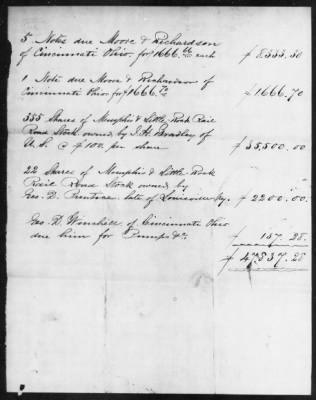 5 Notes due Moore & Richardson
of Cincinnati Ohio. for 1666 66 each $ 8333.30
1 Note due Moore & Richardson of
Cincinnati Ohio for 1666 70 $ 1666.70
355 Shares of Memphis & Little Rock Rail
Road Stock owned by J. H. Bradley of
@ $100. per share $ 35500.00
22 Shares of Memphis & Little Rock
Rail Road Stock owned by
Geo. D. Prentice late of Louisville Ky. $ 2200.00.
Geo. D. Winchell of Cincinnati Ohio
due him for Pumps &c. $ 137.28.
$ 47.837.28